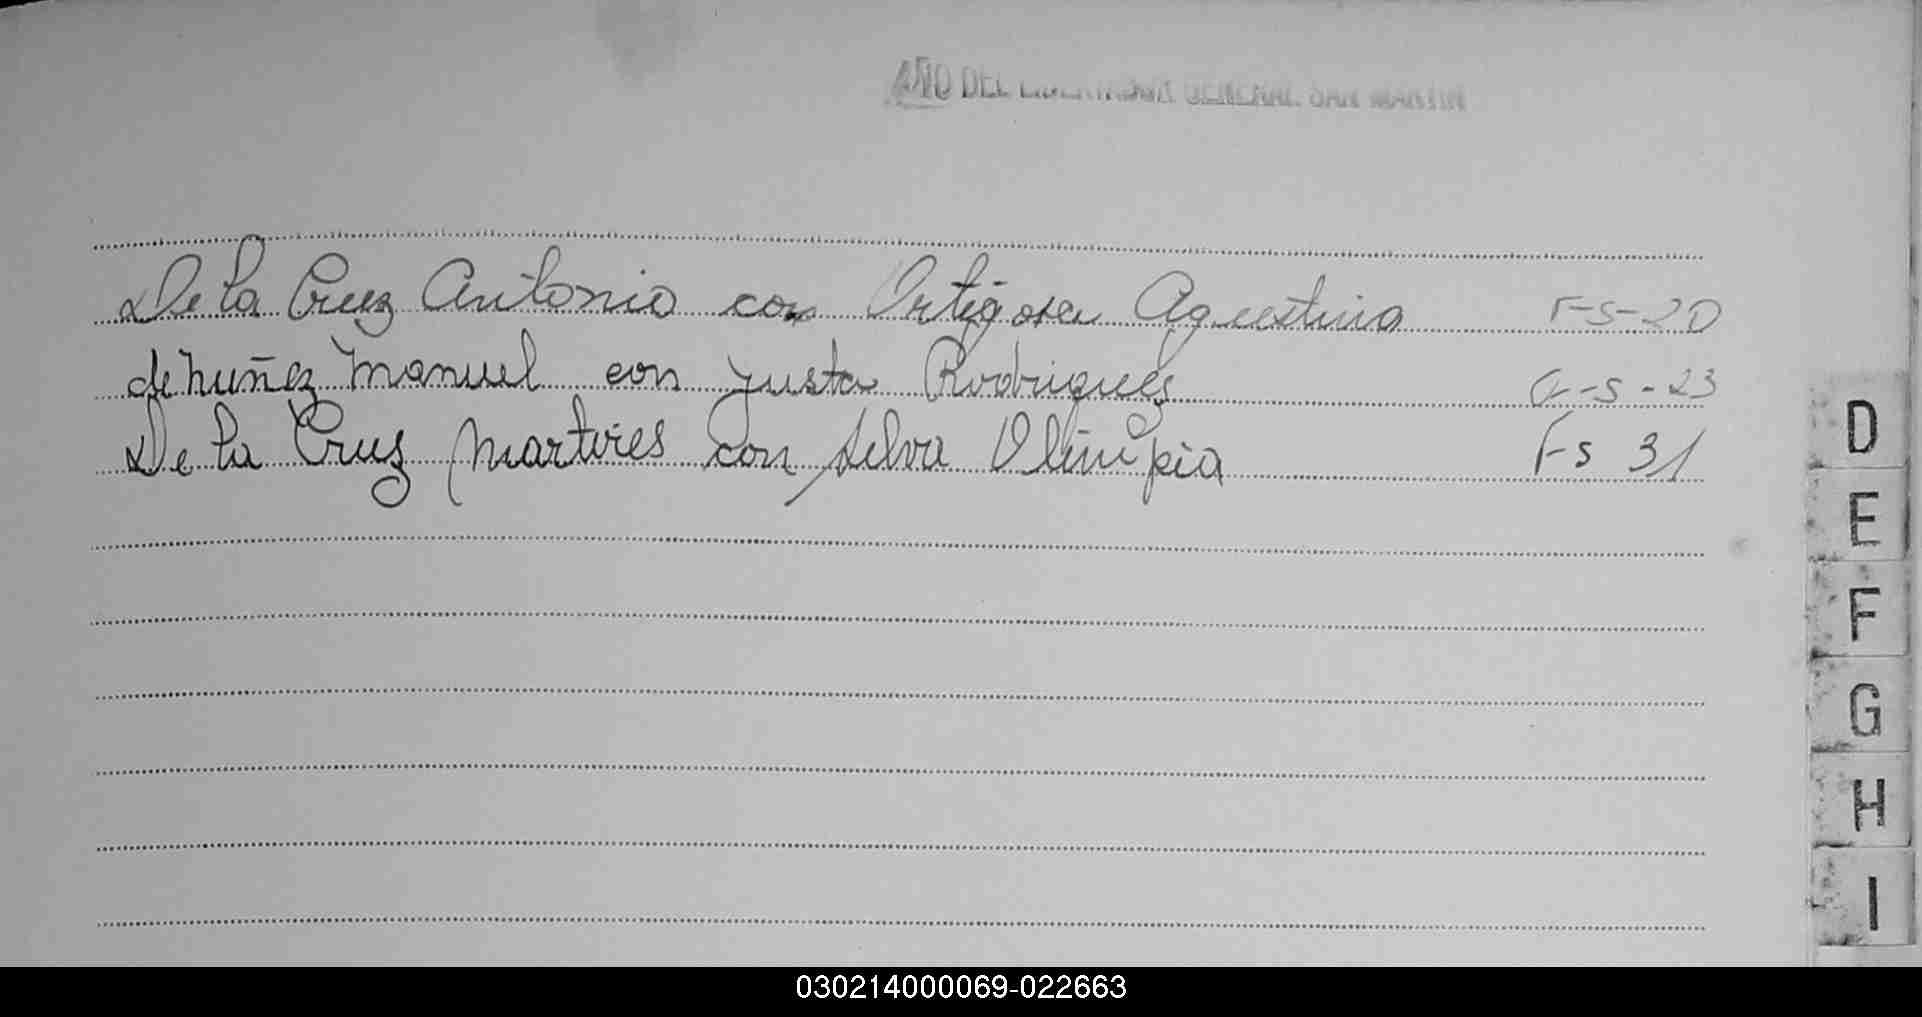 AÑO DEL LIBERTADOR GENERAL SAN MARTIN
De la Cruz Antonio con Ortigosa Agustina FS-20
de Nuñez Manuel con Justa Rodriguez FS-23
De la Cruz Martires con Silva Olimpia Fs 31
D
E
F
G
H
I
030214000069-022663